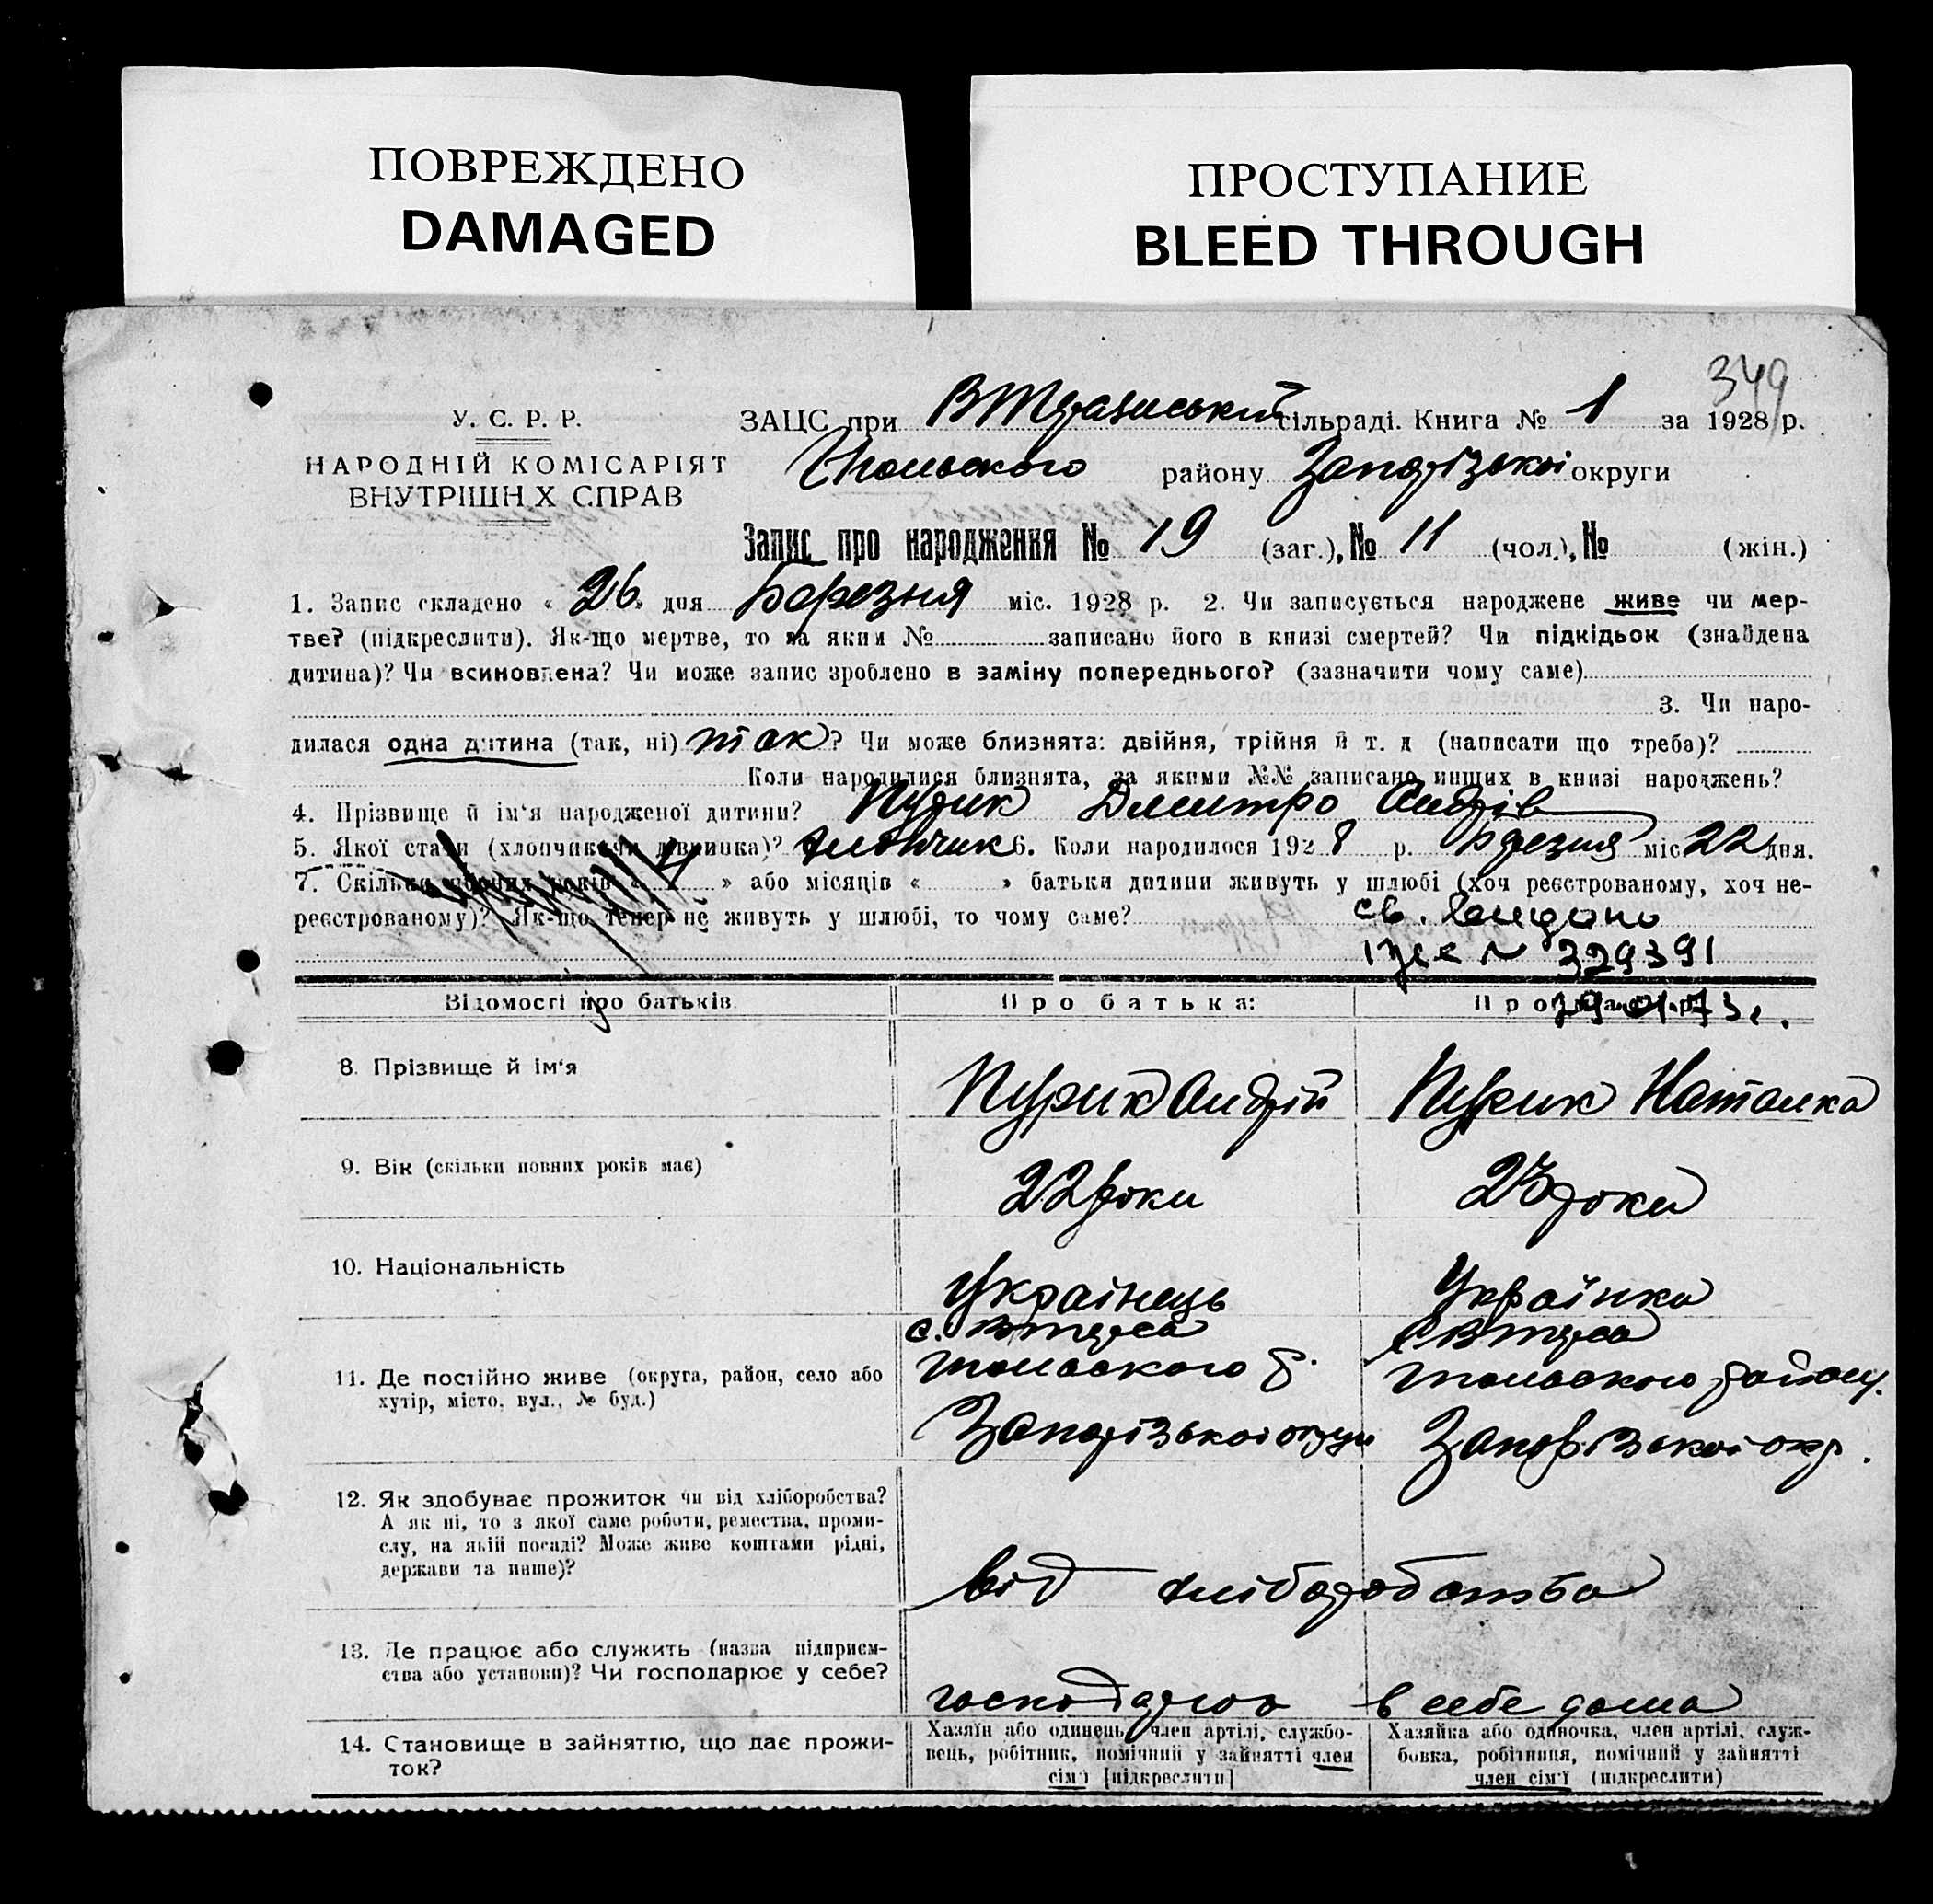 ПОВРЕЖДЕНО
DAMAGED
ПРОСТУПАНИЕ
BLEED THROUGH
349
У. С. Р. Р.
НАРОДНІЙ КОМІСАРІЯТ
ВНУТРІШН Х СПРАВ
ЗАЦС при сільраді. Книга № 1 за 1928 р.
району Запорізької округи
Запис про народження № 19 (заг.), № 11 (чол.), № (жін.)
1. Запис складено « 26 » дня Березня міс. 1928 р. 2. Чи записується народжене живе чи мер-
тве? (підкреслити). Як-що мертве, то за яким № записано його в книзі смертей? Чи підкідьок (знайдена
дитина)? Чи всиновлена? Чи може запис зроблено в заміну попереднього? (зазначити чому саме)
3. Чи наро-
дилася одна дитина (так, ні) так? Чи може близнята: двійня, трійня й т. д (написати що треба)?
Коли народилися близнята, за якими №№ записано инших в книзі народжень?
4. Прізвище й ім'я народженої дитини? Пурик Дмитро Андрів
5. Якої стати (хлопчик чи дівчинка)? Хлопчик 6. Коли народилося 1928 р. Березня міс 22 дня.
7. Скільки повних років « » або місяців « » батьки дитини живуть у шлюбі (хоч реєстрованому, хоч не-
реєстрованому)? Як-що тепер не живуть у шлюбі, то чому саме? св. выдано
№ 329391
Відомості про батьків
Про батька:
8. Прізвище й ім'я Пурик Андрій Пурик Наталка
9. Вік (скільки повних років має) 22 роки 23 роки
10. Національність Українець Українка
11. Де постійно живе (округа, район, село або
хутір, місто, вул., № буд.)
с. Втраса
р.
Запорізької округи
с Втраса
району.
Запорізької окр.
12. Як здобуває прожиток чи від хліборобства?
А як ні, то з якої саме роботи, ремества, проми-
слу, на якій посаді? Може живе коштами рідні,
держави та инше)?
від хліборобства
13. Де працює або служить (назва підприєм-
ства або установи)? Чи господарює у себе?
господарює в себе дома
14. Становище в зайняттю, що дає прожи-
ток?
Хазяїн або одинець, член артілі, службо-
вець, робітник, помічний у зайнятті член
сім'ї [підкреслити]
Хазяйка або одиночка, член артілі, служ-
бовка, робітниця, помічний у зайнятті
член сім'ї (підкреслити)